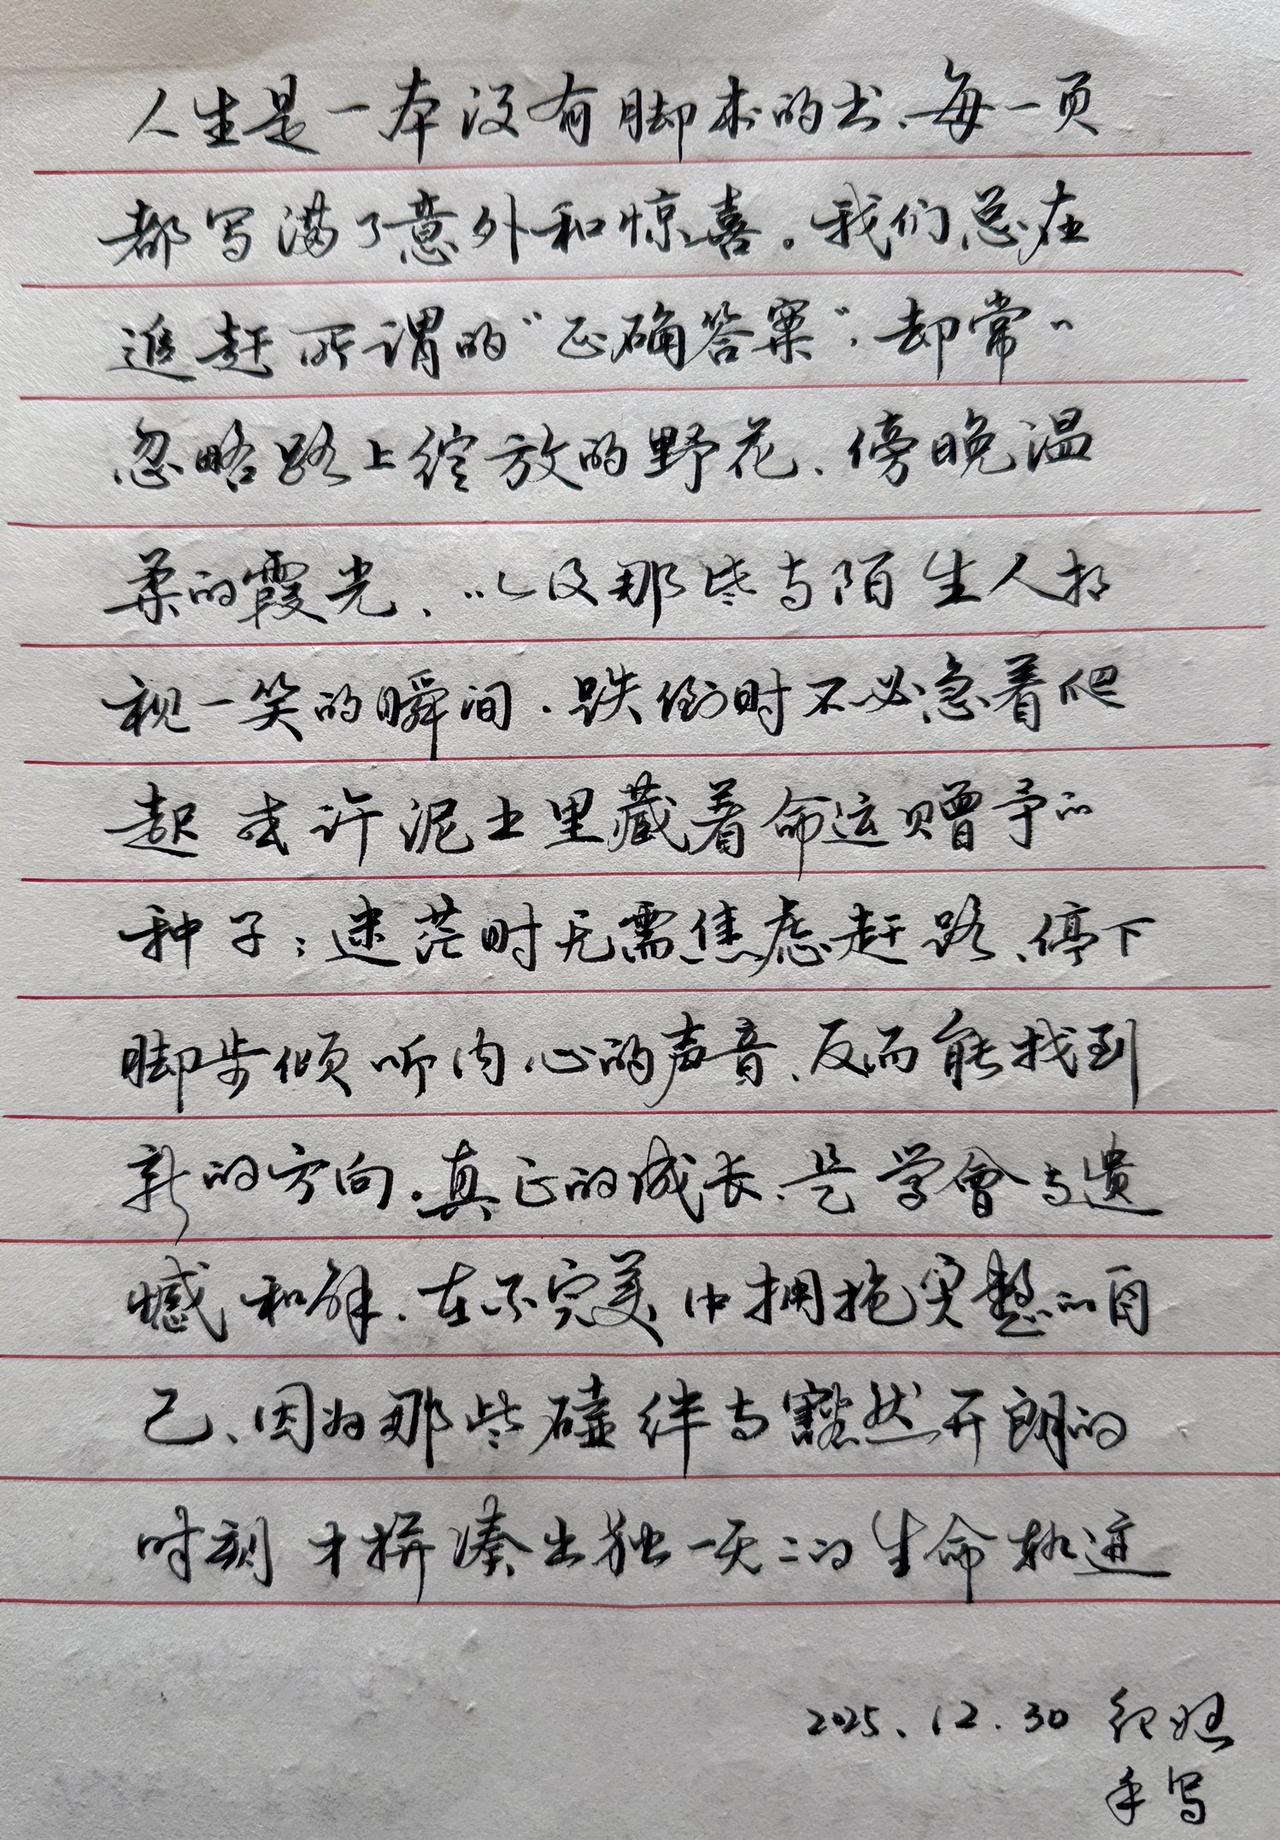 人生是一本没有脚本的书、每一页
都写满了意外和惊喜。我们总在
追赶所谓的“正确答案”，却常〃
忽略路上绽放的野花、傍晚温
柔的霞光、以及那些与陌生人相
视一笑的瞬间．跌倒时不必急着爬
起 或许泥土里藏着命运赠予的
种子；迷茫时无需焦虑赶路、停下
脚步倾听内心的声音、反而能找到
新的方向。真正的成长、是学會与遗
憾和解．在不完美中拥抱完整的自
己、因为那些磕绊与豁然开朗的
时刻 才拼凑出独一无二的生命轨迹
2025.12.30
手写